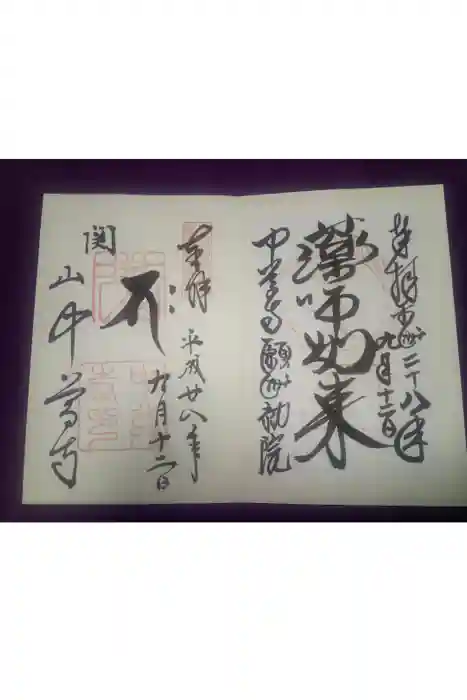 奉拝平成二十八年
九月十二日
薬師如来
中尊寺願成就院
奉拝
平成廿八年
九月十二日
関
山中尊寺